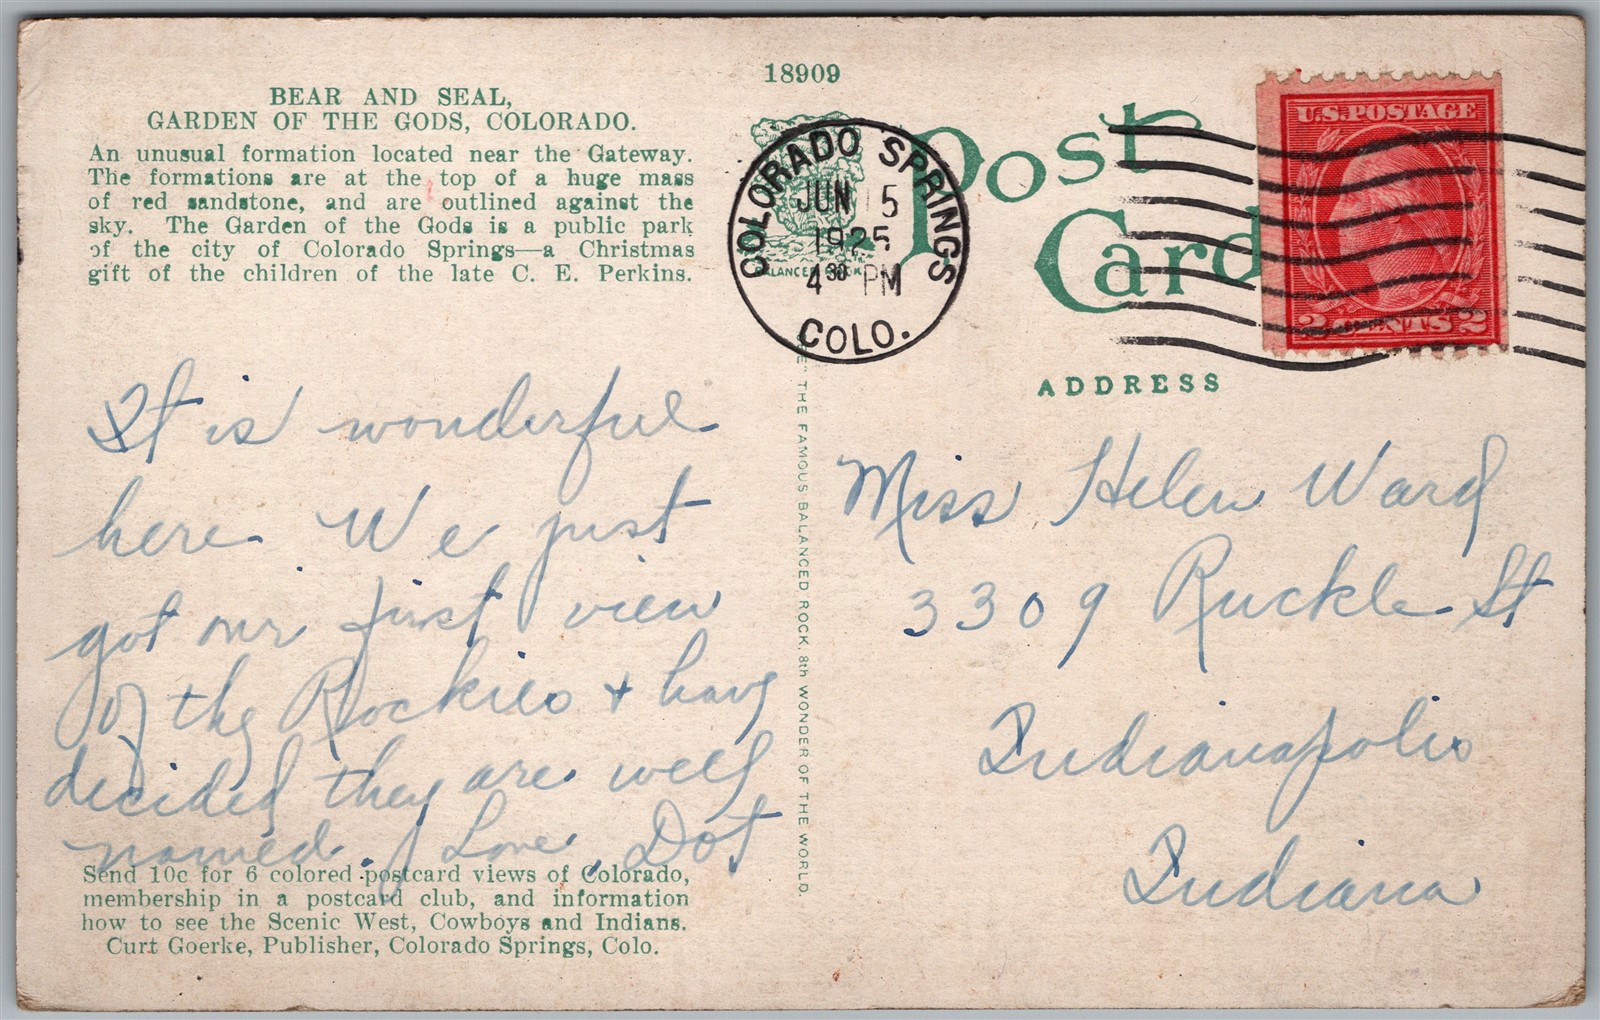 18909
BEAR AND SEAL,
GARDEN OF THE GODS, COLORADO.
An unusual formation located near the Gateway.
The formations are at the top of a huge mass
of red sandstone, and are outlined against the
sky. The Garden of the Gods is a public park
of the city of Colorado Springs—a Christmas
gift of the children of the late C. E. Perkins.
It is wonderful
here. We just
got our first view
of the Rockies + have
decided they are well
named. Love, Dot
Send 10c for 6 colored postcard views of Colorado,
membership in a postcard club, and information
how to see the Scenic West, Cowboys and Indians.
Curt Goerke, Publisher, Colorado Springs, Colo.
THE FAMOUS BALANCED ROCK, 8th WONDER OF THE WORLD.
COLORADO SPRINGS
JUN 15
1925
4 30 PM
COLO.
Post
Card
U.S. POSTAGE
2 CENTS 2
ADDRESS
Miss Helen Ward
3309 Ruckle St
Indianapolis
Indiana